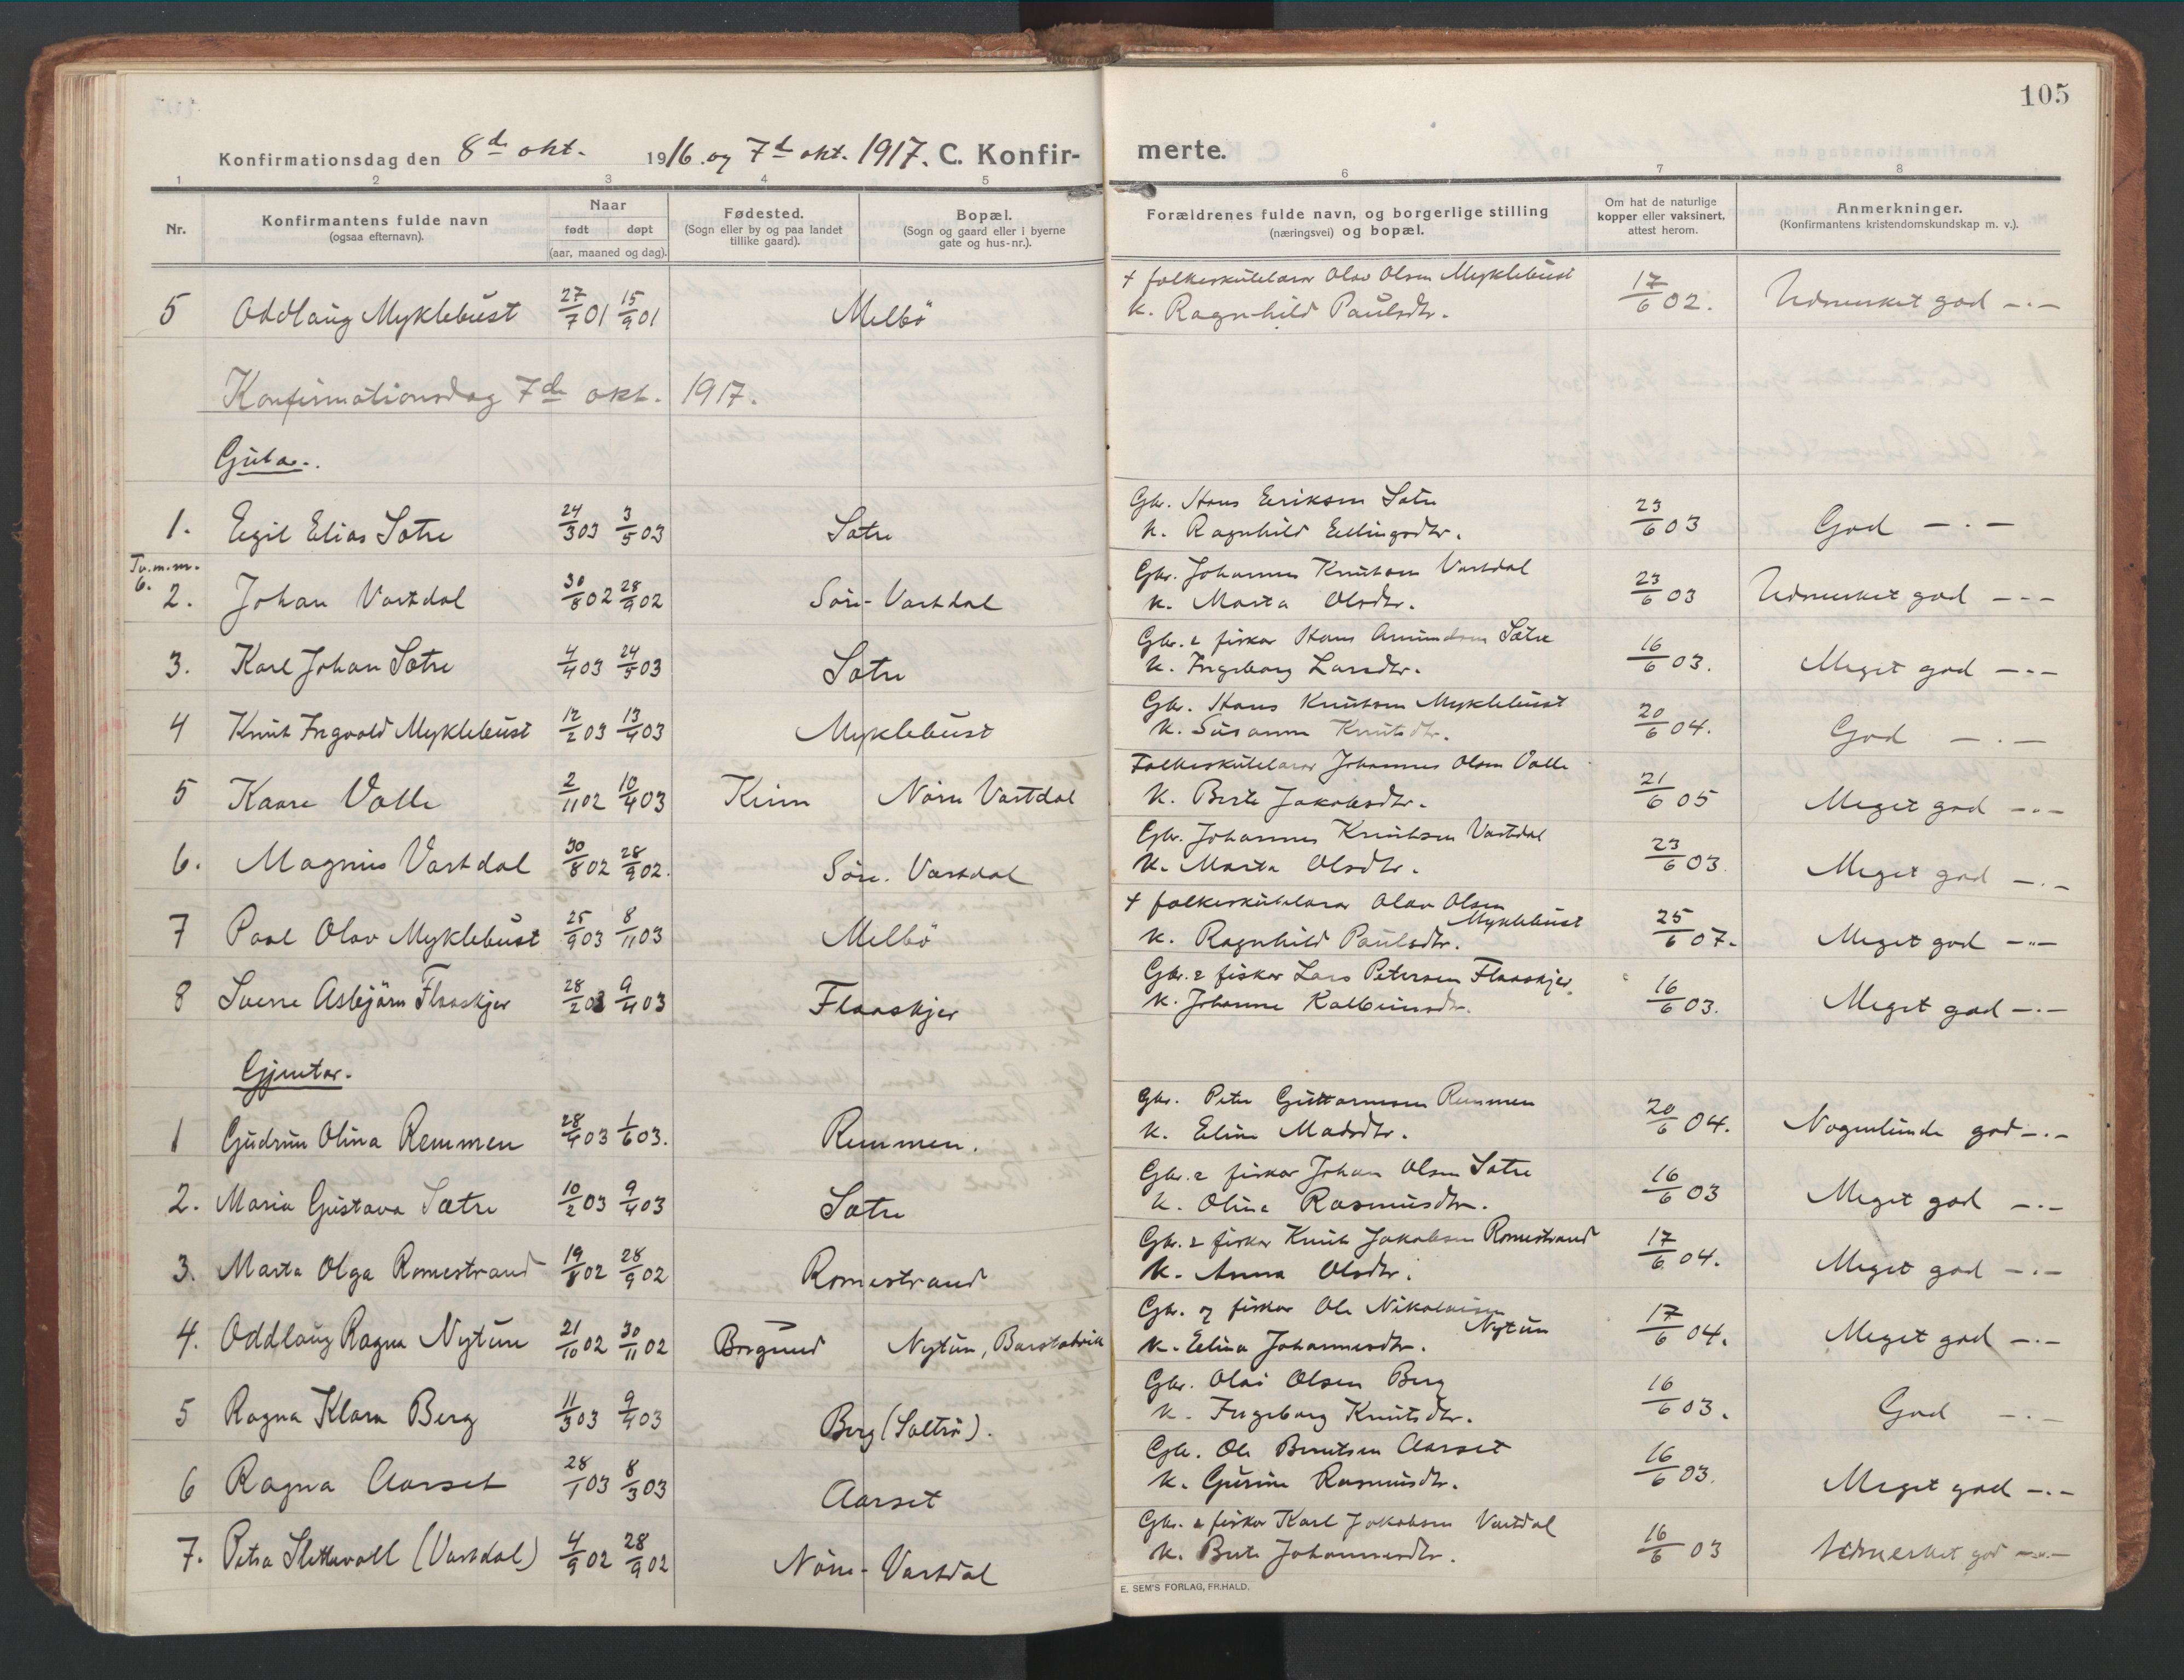 105
Konfirmationsdag den 8de okt. 1916 og 7de okt. 1917. C. Konfir-merte.
1 2 3 4 5 6 7 8
Nr.
Konfirmantens fulde navn
(ogsaa efternavn).
Naar
født døpt
(aar, maaned og dag).
Fødested.
(Sogn eller by og paa landet
tillike gaard).
Bopæl.
(Sogn og gaard eller i byerne
gate og hus-nr.).
Forældrenes fulde navn, og borgerlige stilling
(næringsvei) og bopæl.
Om hat de naturlige
kopper eller vaksinert,
attest herom.
Anmerkninger.
(Konfirmantens kristendomskundskap m. v.).
5 Oddlaug Myklebust 27/7 01 15/9 01 Melbö † folkeskulelærar Olav Olsen Myklebust 17/6 02. Udmerket god -.-
k. Ragnhild Paulsdtr.
Konfirmationsdag 7de okt. 1917.
Gutar.
1. Eegil Elias Sætre 24/3 03 3/5 03 Sætre Gbr. Hans Eeriksen Sætre 23/6 03 God -.-
k. Ragnhild Eellingsdtr.
Tv. m. m. 6.
2. Johan Vartdal 30/8 02 28/9 02 Söre-Vartdal Gbr. Johannes Knutsen Vartdal 23/6 03 Udmerket god ---
k. Marta Olsdtr.
3. Karl Johan Sætre 4/4 03 24/5 03 Sætre Gbr. & fiskar Hans Amundsen Sætre 16/6 03. Meget god -.-
k. Ingeborg Larsdtr.
4 Knut Ingvald Myklebust 12/2 03 13/4 03 Myklebust Gbr. Hans Knutsen Myklebust 20/6 04. God -.-
k. Susanne Knutsdtr.
5 Kaare Valle 2/11 02 10/4 03 Kinn Nörre Vartdal Folkeskulelærar Johannes Olsen Valle 21/6 05 Meget god -.-
k. Berte Jakobsdtr.
6. Magnus Vartdal 30/8 02 28/9 02. Söre-Vartdal Gbr. Johannes Knutsen Vartdal 23/6 03. Meget god -.-
k. Marta Olsdtr.
7 Paal Olav Myklebust 25/9 03 8/11 03 Melbö † folkeskulelærar Olav Olsen Myklebust 25/6 07. Meget god -.-
k. Ragnhild Paulsdtr.
8 Sverre Asbjörn Flaaskjer 28/2 03 9/4 03 Flaaskjer Gbr. & fiskar Lars Petersen Flaaskjer. 16/6 03. Meget god -.-
k. Johanne Kolbeinsdtr.
Gjentar.
1 Gudrun Olina Remmen 28/4 03 1/6 03. Remmen. Gbr. Peter Guttormsen Remmen 20/6 04. Nogenlunde god -.-
k. Eline Madsdtr.
2. Maria Gustava Sætre 10/2 03 9/4 03 Sætre Gbr. & fiskar Johan Olsen Sætre 16/6 03 Meget god -.-
k. Oline Rasmusdtr.
3. Marta Olga Romestrand 19/8 02 28/9 02 Romestrand Gbr. & fiskar Knut Jakobsen Romestrand 17/6 04. Meget god -.-
k. Anna Olsdtr.
4. Oddlaug Ragna Nytun 21/10 02 30/11 02 Borgund Nytun, Barstadvik Gbr. og fiskar Ole Nikolaisen Nytun 17/6 04. Meget god -.-
k. Elina Johannesdtr.
5 Ragna Klara Berg 11/3 03 9/4 03 Berg (Saltrö). Gbr. Olai Olsen Berg 16/6 03. God -.-
k. Ingeborg Knutsdtr.
6 Ragna Aarset 28/1 03 8/3 03 Aarset Gbr. Ole Berntsen Aarset 16/6 03. Meget god -.-
k. Gurine Rasmusdtr.
7. Petra Slettevoll (Vartdal) 4/9 02 28/9 02 Nörre-Vartdal Gbr. & fiskar Karl Jakobsen Vartdal 16/6 03 Udmerket god -.-
k. Berte Johannesdtr.
E. SEM'S FORLAG, FR.HALD.